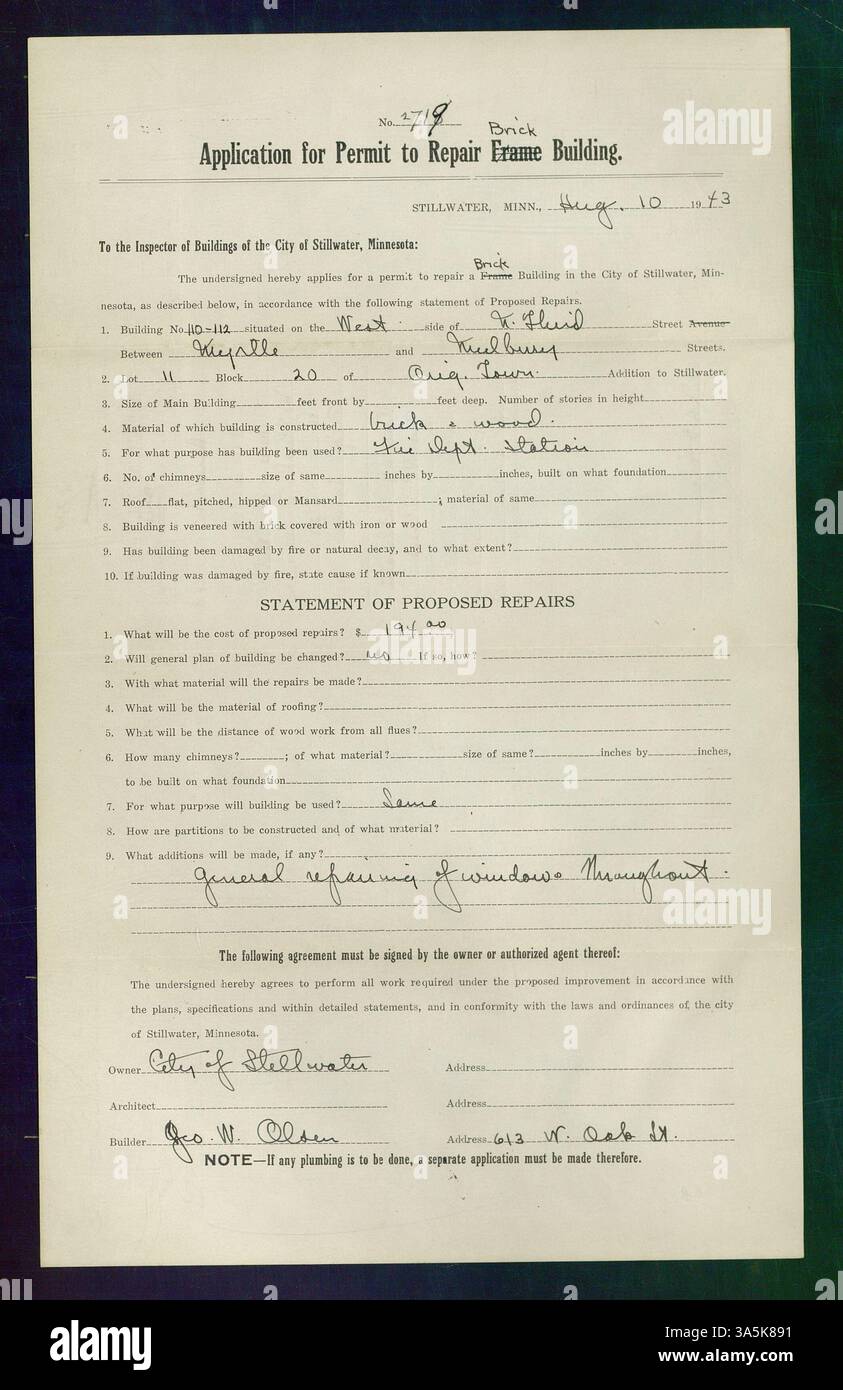 No. 2719
Brick
Application for Permit to Repair Frame Building.
STILLWATER, MINN., Aug. 10 1943
To the Inspector of Buildings of the City of Stillwater, Minnesota:
Brick
The undersigned hereby applies for a permit to repair a Frame Building in the City of Stillwater, Min-
nesota, as described below, in accordance with the following statement of Proposed Repairs.
1. Building No. 110-112 situated on the West side of N. Third Street Avenue
Between Myrtle and Mulberry Streets.
2. Lot 11 Block 20 of Orig. Town. Addition to Stillwater.
3. Size of Main Building feet front by feet deep. Number of stories in height
4. Material of which building is constructed brick & wood.
5. For what purpose has building been used? Fire Dept. Station
6. No. of chimneys size of same inches by inches, built on what foundation
7. Roof flat, pitched, hipped or Mansard ; material of same
8. Building is veneered with brick covered with iron or wood
9. Has building been damaged by fire or natural decay, and to what extent?
10. If building was damaged by fire, state cause if known
STATEMENT OF PROPOSED REPAIRS
1. What will be the cost of proposed repairs? $ 194.00
2. Will general plan of building be changed? no If so, how?
3. With what material will the repairs be made?
4. What will be the material of roofing?
5. What will be the distance of wood work from all flues?
6. How many chimneys? ; of what material? size of same? inches by inches,
to be built on what foundation
7. For what purpose will building be used? Same
8. How are partitions to be constructed and of what material?
9. What additions will be made, if any?
General repairing of windows throughout.
The following agreement must be signed by the owner or authorized agent thereof:
The undersigned hereby agrees to perform all work required under the proposed improvement in accordance with
the plans, specifications and within detailed statements, and in conformity with the laws and ordinances of, the city
of Stillwater, Minnesota.
Owner City of Stillwater Address
Architect Address
Builder Geo. W. Olsen Address 613 W. Oak St.
NOTE—If any plumbing is to be done, a separate application must be made therefore.
alamy
Image ID: 3A5K891
www.alamy.com